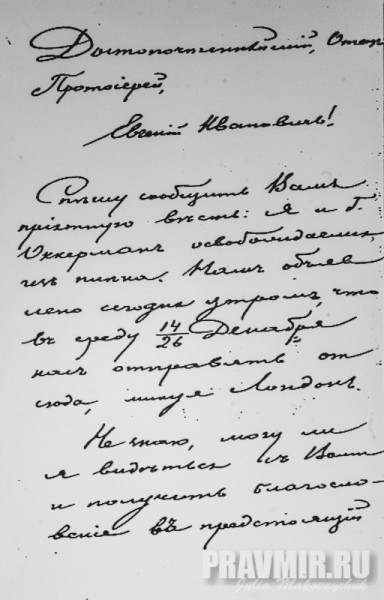 Достопочтеннѣйшій, Отец
Протоіерей,
Евгеній Ивановичъ!
Спѣшу сообщить Вамъ
пріятную вѣсть: я и
Уккерманъ освобождаемся
изъ плѣна. Намъ объяв
лено сегодня утромъ, что
въ среду 14/26 Декабря
насъ отправятъ от
сюда, минуя Лондонъ.
Не знаю, могу ли
я видѣться съ Вами
и получить благосло-
веніе въ предстоящій
PRAVMIR.RU
Julia Makoveychuk